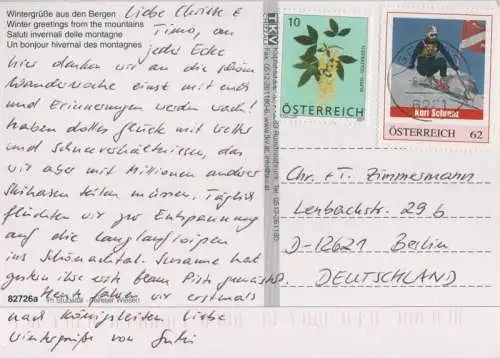 Wintergrüße aus den Bergen
Winter greetings from the mountains
Saluti invernali delle montagne
Un bonjour hivernal des montagnes
Liebe Christie &
Timo, an
jeder Ecke
hier denken wir an die schöne
Wanderwoche einst mit euch
und Erinnerungen werden wach!
haben tolles Glück mit Wetter
und Schneeverhältnissen, das
wir aber mit Millionen anderer
Skihasen teilen müssen. Täglich
flüchten wir zur Entspannung
auf die Langlaufloipen
ins Schönachtal. Susanne hat
gestern ihre erste blaue Piste gemeistert.
82726a
Heute fahren wir erstmals
nach Königsleiten. Liebe
Wintergrüße von
TKV
10
ÖSTERREICH
Karl Schranz
ÖSTERREICH 62
Chr. + T. Zimmermann
Lenbachstr. 29 b
D-12621 Berlin
DEUTSCHLAND